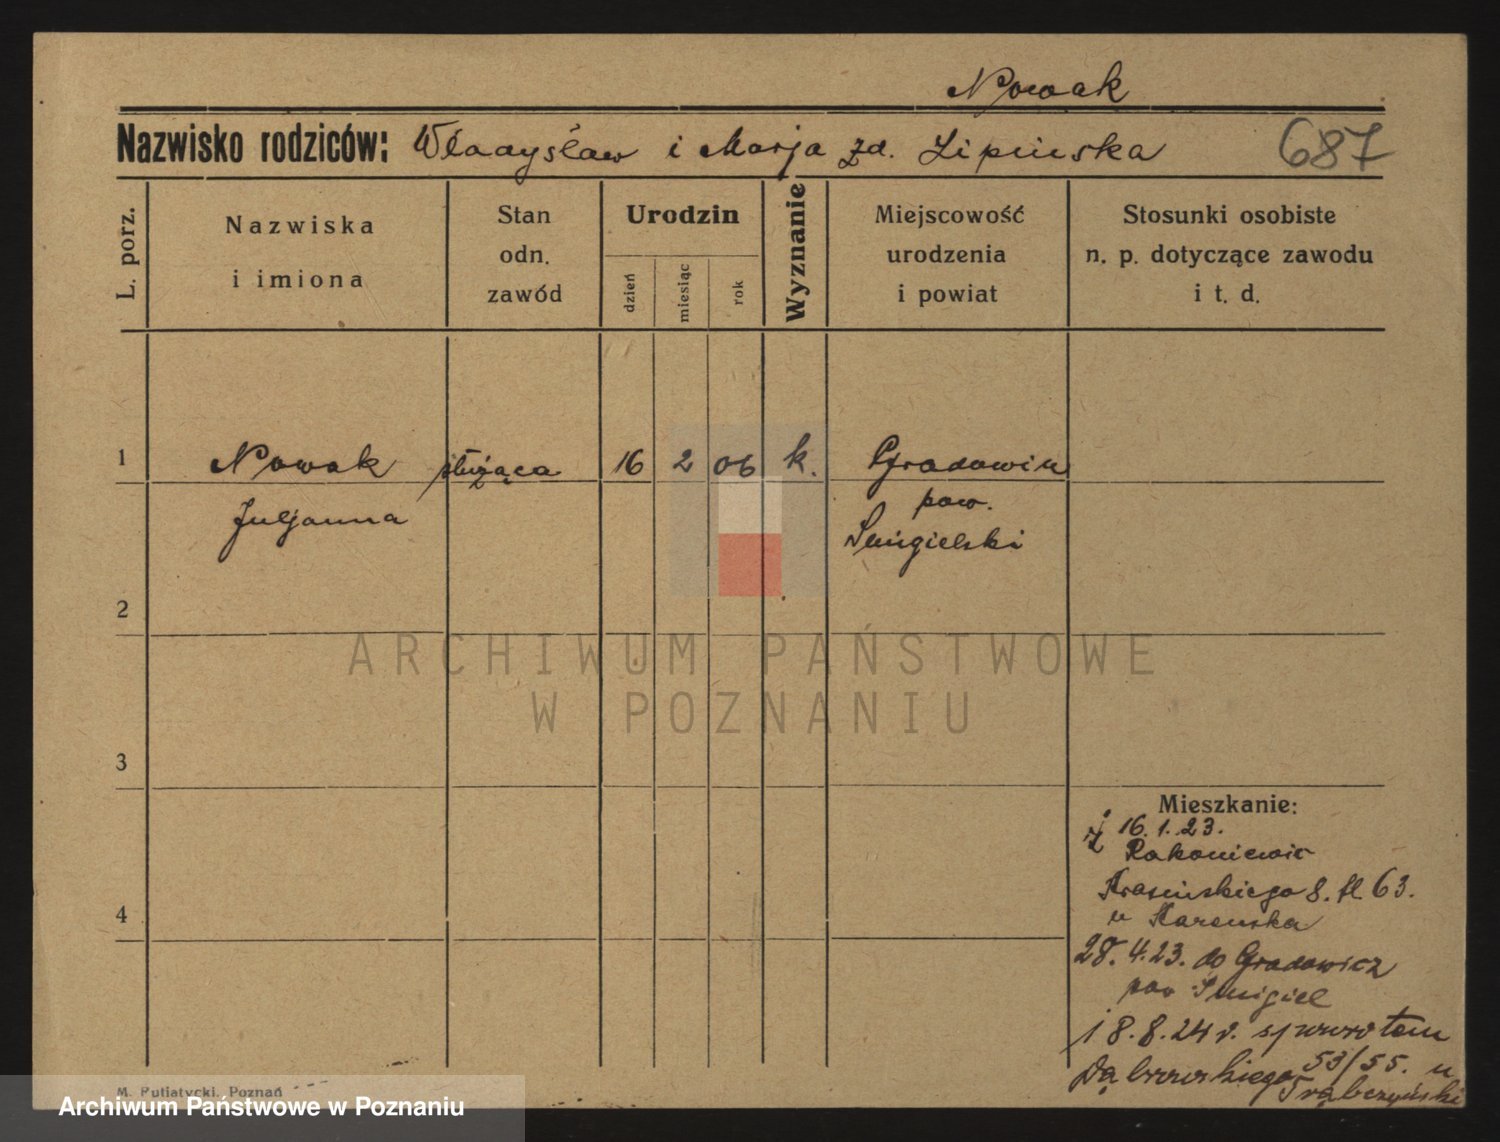 Nowak
Nazwisko rodziców: Władysław i Marja zd. Lipinska 687
L. porz.
Nazwiska
i imiona
Stan
odn.
zawód
Urodzin
dzień
miesiąc
rok
Wyznanie
Miejscowość
urodzenia
i powiat
Stosunki osobiste
n. p. dotyczące zawodu
i t. d.
1 Nowak służąca 16 2 06 k. Gradowin
Juljanna
pow.
Śmigielski
2
ARCHIWUM PAŃSTWOWE
W POZNANIU
3
4
Mieszkanie:
z 16.1.23.
Rakoniewic
Krasińskiego 8. 63.
u Karenska
28.4.23. do Gradowicz
pow Śmigiel
18.8.24 r. spowrotem
Dąbrowskiego 53/55. u
Trąbczyński
M. Putiatycki, Poznań
Archiwum Państwowe w Poznaniu